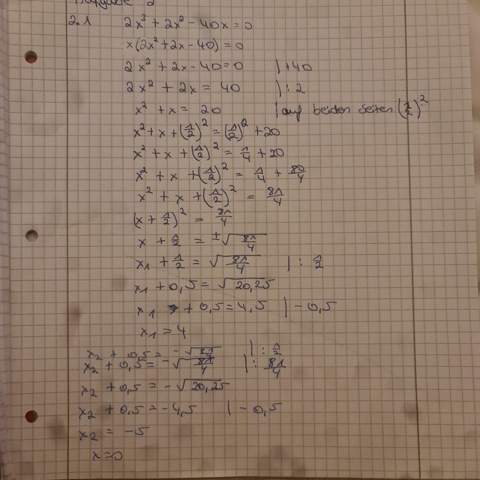 Aufgabe 2
2.1 2x³ + 2x² - 40x = 0
x(2x² + 2x - 40) = 0
2x² + 2x - 40 = 0 | +40
2x² + 2x = 40 | : 2
x² + x = 20 | auf beiden Seiten (1/2)²
x² + x + (1/2)² = (1/2)² + 20
x² + x + (1/2)² = 1/4 + 20
x² + x + (1/2)² = 1/4 + 80/4
x² + x + (1/2)² = 81/4
(x + 1/2)² = 81/4
x + 1/2 = ±√81/4
x₁ + 1/2 = √81/4 | : 1/2
x₁ + 0,5 = √20,25
x₁ + 0,5 = 4,5 | - 0,5
x₁ = 4
x₂ + 0,5 = -√81/4 | : 81/4
x₂ + 0,5 = -√20,25
x₂ + 0,5 = -4,5 | - 0,5
x₂ = -5
x = 0